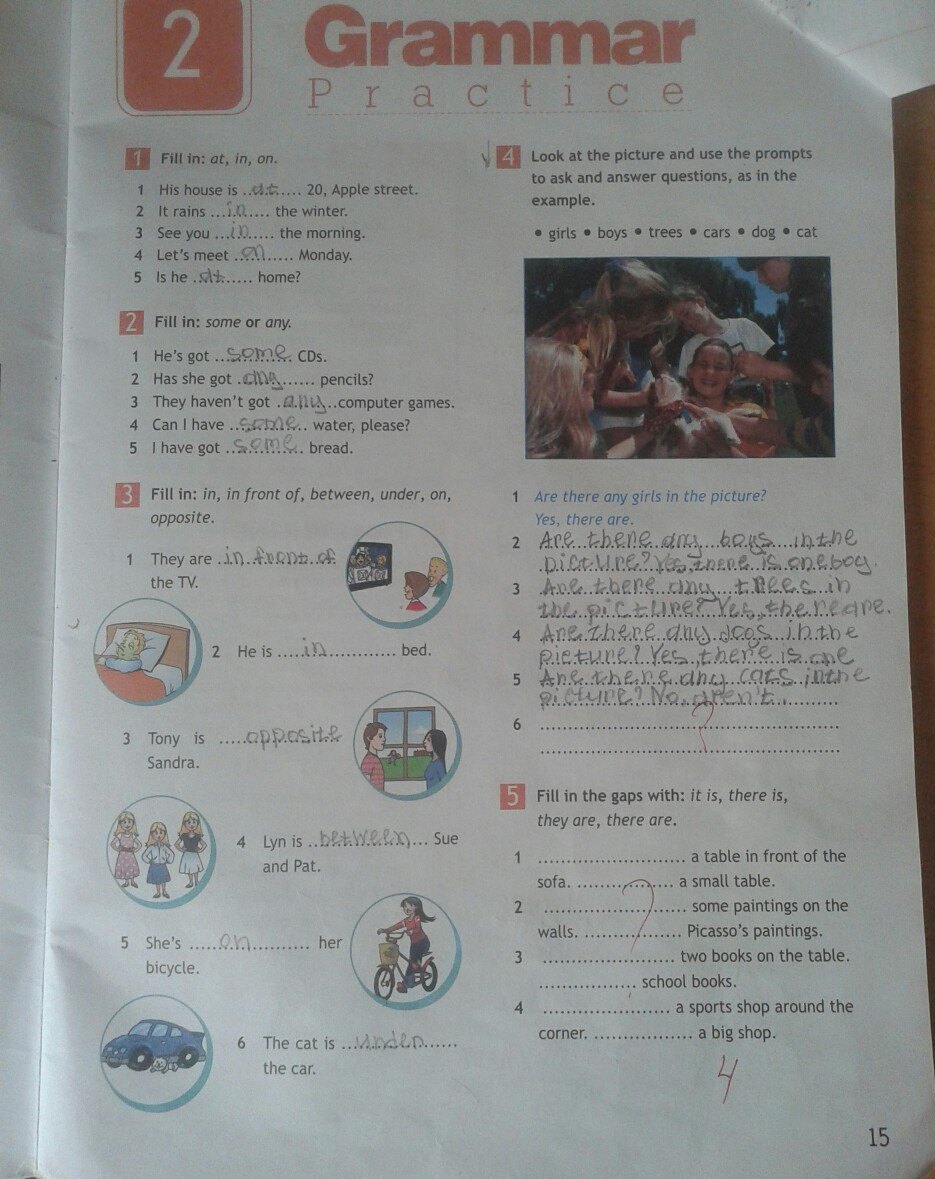 2
Grammar
Practice
1 Fill in: at, in, on.
1 His house is ..at.... 20, Apple street.
2 It rains ...in.... the winter.
3 See you ...in..... the morning.
4 Let's meet ..on...... Monday.
5 Is he ..at...... home?
2 Fill in: some or any.
1 He's got ..some.. CDs.
2 Has she got .any...... pencils?
3 They haven't got ..any..computer games.
4 Can I have ..some.. water, please?
5 I have got ..some.. bread.
3 Fill in: in, in front of, between, under, on,
opposite.
1 They are ..in front of
the TV.
2 He is ....in............ bed.
3 Tony is ....opposite
Sandra.
4 Lyn is ..between... Sue
and Pat.
5 She's .....on.......... her
bicycle.
6 The cat is ..under......
the car.
4 Look at the picture and use the prompts
to ask and answer questions, as in the
example.
• girls • boys • trees • cars • dog • cat
1 Are there any girls in the picture?
Yes, there are.
2 Are there any boys in the
picture? Yes, there is one boy.
3 Are there any trees in
the picture? Yes, there are.
4 Are there any dogs in the
picture? Yes, there is one
5 Are there any cats in the
picture? No, aren't.
6 ........................................
?
5 Fill in the gaps with: it is, there is,
they are, there are.
1 .......................... a table in front of the
sofa. ................. a small table.
2 .......................... some paintings on the
walls. ................. Picasso's paintings.
?
3 ........................ two books on the table.
................. school books.
4 ....................... a sports shop around the
corner. .................. a big shop.
4
15